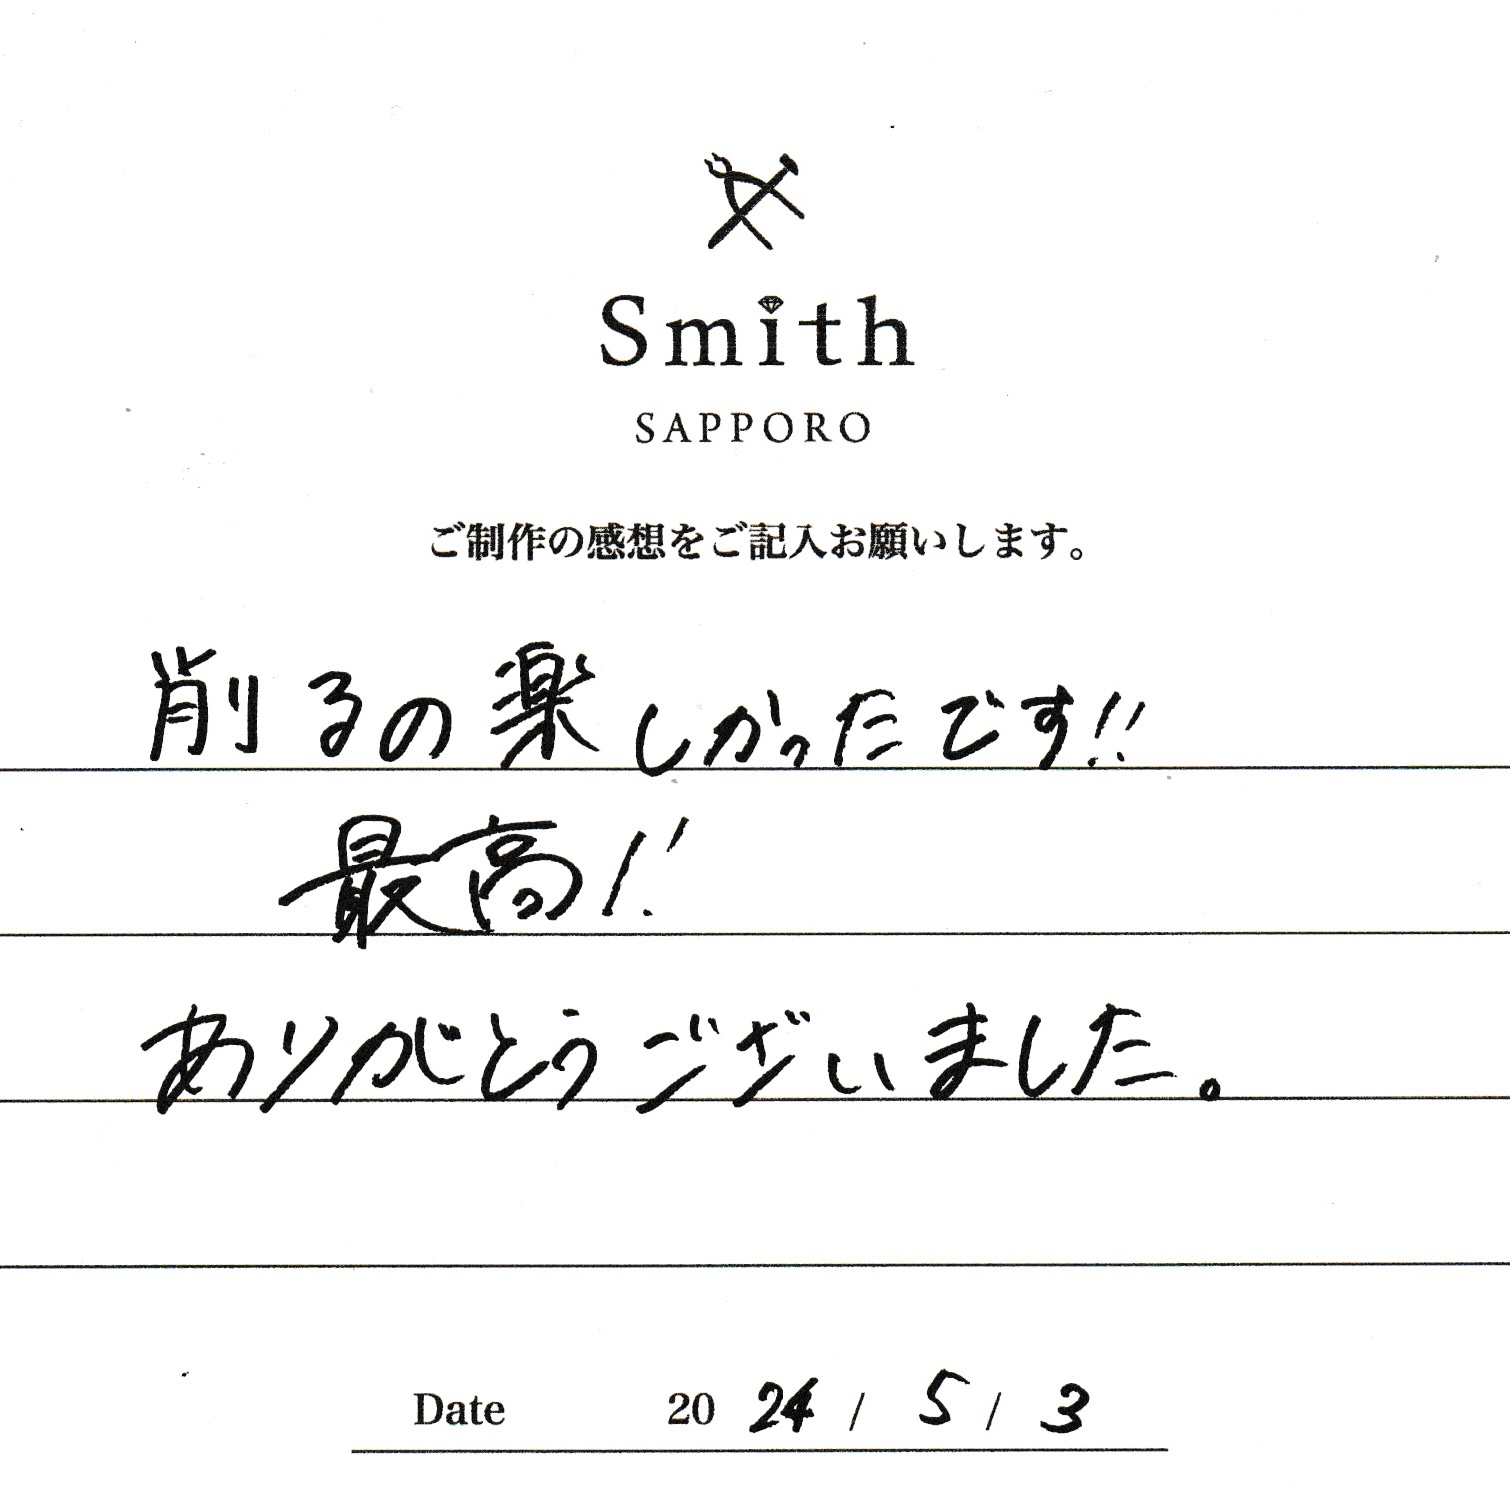 Smith
SAPPORO
ご制作の感想をご記入お願いします。
削るの楽しかったです!!
最高!!
ありがとうございました。
Date 2024 / 5 / 3